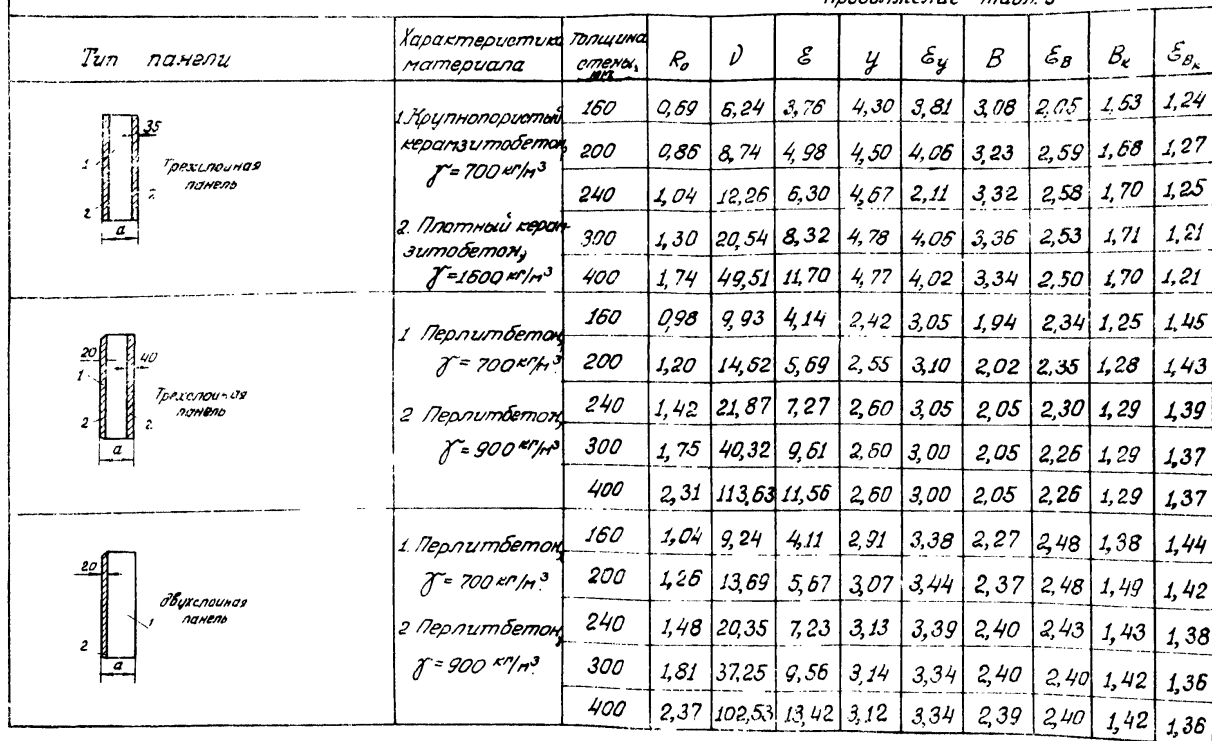 Продолжение табл. 3
Тип панели | Характеристика материала | Толщина стены, мм | R₀ | ν | ε | У | εу | В | εВ | Вк | εВк
35
1
Трехслойная
панель
2 2
a
1. Крупнопористый
керамзитобетон,
γ = 700 кг/м³
2. Плотный керам-
зитобетон,
γ = 1600 кг/м³
160 | 0,69 | 6,24 | 3,76 | 4,30 | 3,81 | 3,08 | 2,05 | 1,53 | 1,24
200 | 0,86 | 8,74 | 4,98 | 4,50 | 4,06 | 3,23 | 2,59 | 1,68 | 1,27
240 | 1,04 | 12,26 | 6,30 | 4,67 | 2,11 | 3,32 | 2,58 | 1,70 | 1,25
300 | 1,30 | 20,54 | 8,32 | 4,78 | 4,05 | 3,36 | 2,53 | 1,71 | 1,21
400 | 1,74 | 49,51 | 11,70 | 4,77 | 4,02 | 3,34 | 2,50 | 1,70 | 1,21
20 40
1
Трехслойная
панель
2 2
a
1 Перлитбетон,
γ = 700 кг/м³
2 Перлитбетон,
γ = 900 кг/м³
160 | 0,98 | 9,93 | 4,14 | 2,42 | 3,05 | 1,94 | 2,34 | 1,25 | 1,45
200 | 1,20 | 14,62 | 5,69 | 2,55 | 3,10 | 2,02 | 2,35 | 1,28 | 1,43
240 | 1,42 | 21,87 | 7,27 | 2,60 | 3,05 | 2,05 | 2,30 | 1,29 | 1,39
300 | 1,75 | 40,32 | 9,61 | 2,60 | 3,00 | 2,05 | 2,26 | 1,29 | 1,37
400 | 2,31 | 113,63 | 11,56 | 2,60 | 3,00 | 2,05 | 2,26 | 1,29 | 1,37
20
двухслойная
панель
1
2
a
1. Перлитбетон,
γ = 700 кг/м³.
2 Перлитбетон,
γ = 900 кг/м³.
160 | 1,04 | 9,24 | 4,11 | 2,91 | 3,38 | 2,27 | 2,48 | 1,38 | 1,44
200 | 1,26 | 13,69 | 5,67 | 3,07 | 3,44 | 2,37 | 2,48 | 1,49 | 1,42
240 | 1,48 | 20,35 | 7,23 | 3,13 | 3,39 | 2,40 | 2,43 | 1,43 | 1,38
300 | 1,81 | 37,25 | 9,56 | 3,14 | 3,34 | 2,40 | 2,40 | 1,42 | 1,36
400 | 2,37 | 102,53 | 13,42 | 3,12 | 3,34 | 2,39 | 2,40 | 1,42 | 1,36